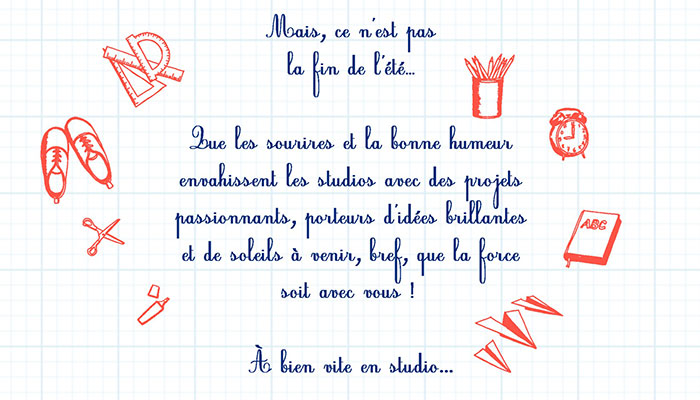 Mais, ce n'est pas
la fin de l'été...
Que les sourires et la bonne humeur
envahissent les studios avec des projets
passionnants, porteurs d'idées brillantes
et de soleils à venir, bref, que la force
soit avec vous !
À bien vite en studio...
ABC